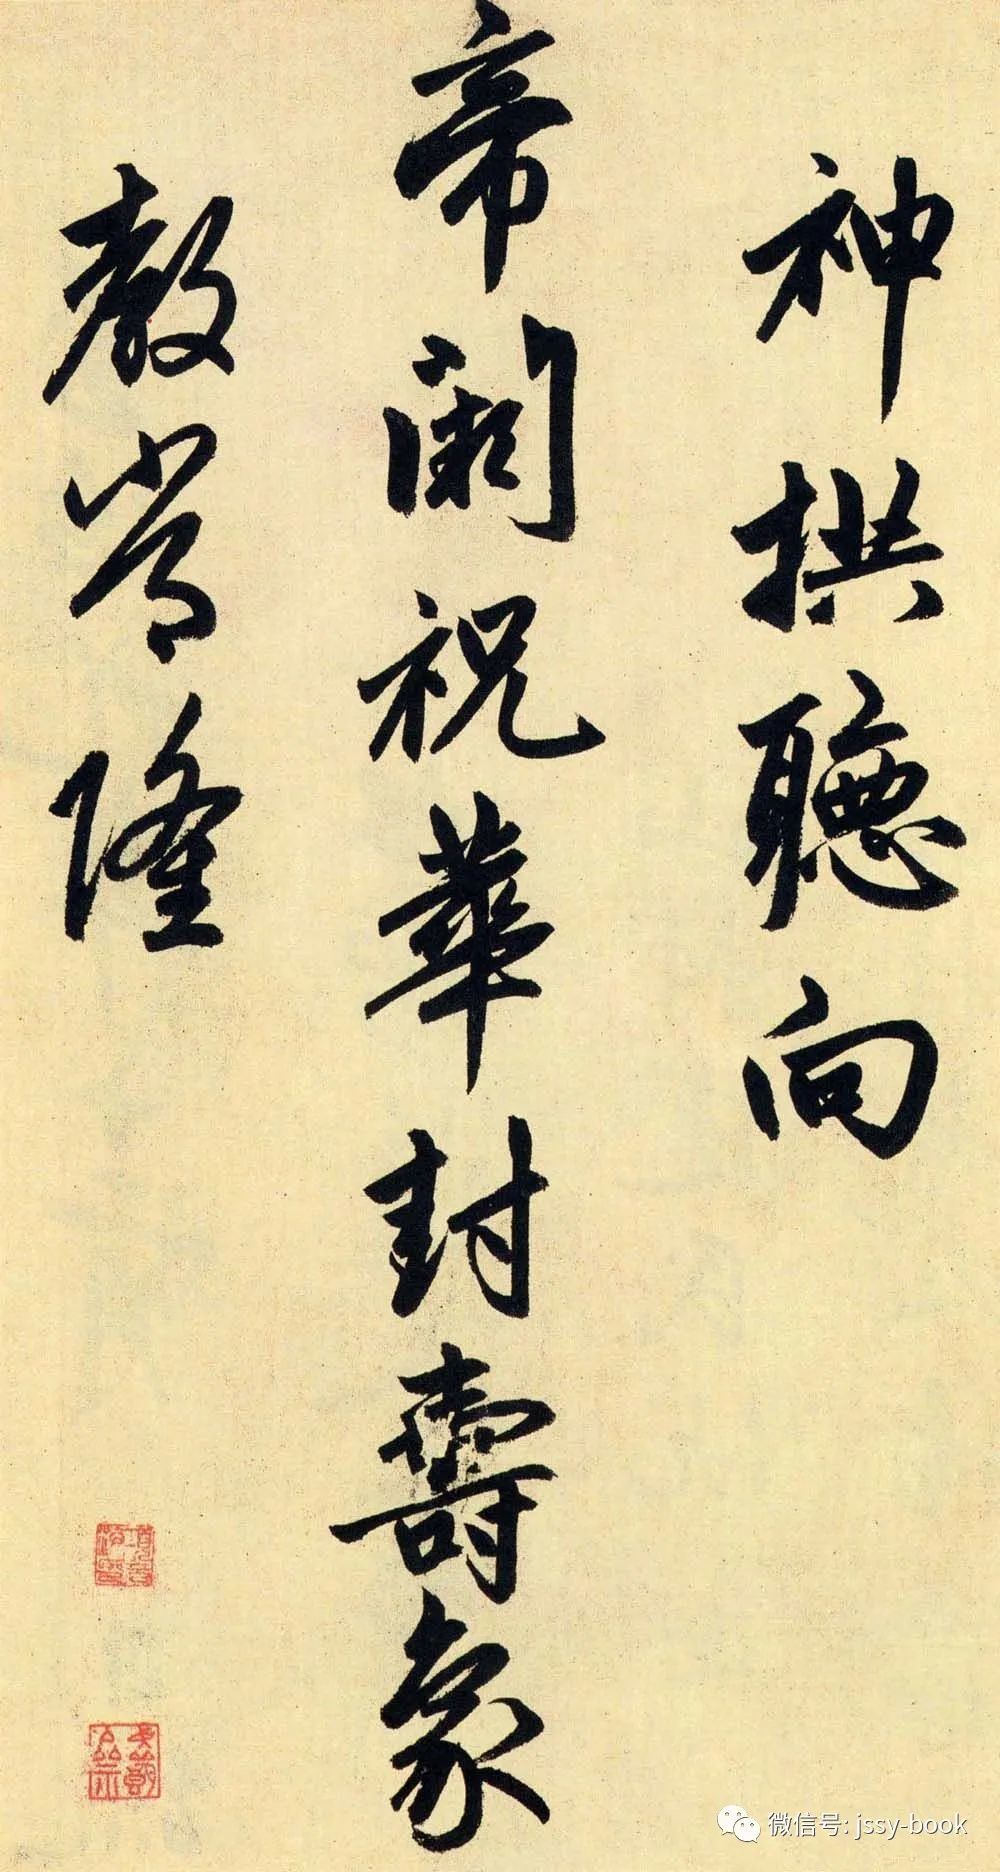 神拱聽向
帝闕祝華封壽象
教常隆
微信号: jssy-book